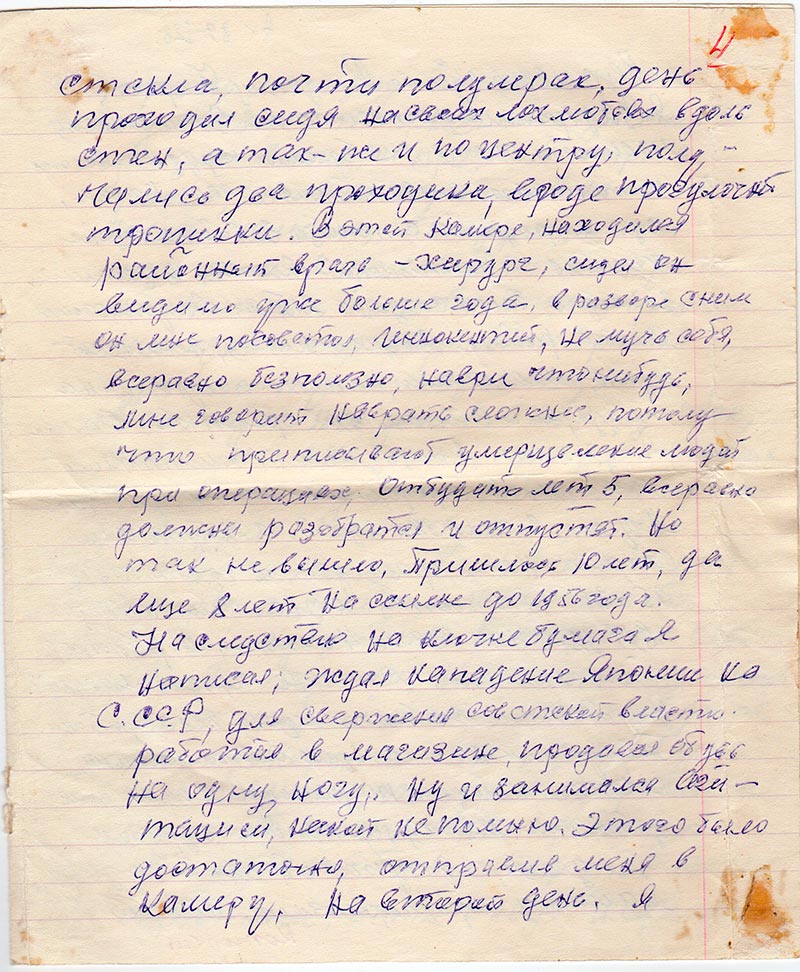 4
стекла, почти полумрак, день
проходил сидя на своих лохмотьях вдоль
стен, а так-же и по центру, полу-
чались два проходика, вроде прогулочной
тропинки. В этой камере, находился
районный врачь - хирург, сидел он
видимо уже больше года, в разворе с ним
он мне посоветов, Иннокентий, не мучь себя,
всеравно безполезно, наври что нибудь,
мне говорит наврать сложнее, потому
что приписывают умерщвление людей
при операциях, отбудишь лет 5, всеравно
должны разобратся и отпустят. Но
так не вышло, Пришлось 10 лет, да
еще 8 лет на ссылке до 1956 года.
На следствею на клочке бумаги я
написал; ждал нападение Японии на
С.ССР, для свержения советской власти.
работая в магазине, продавал обувь
на одну ногу, ну и занимался аги-
тацией, какой не помню. Этого было
достаточно, отправив меня в
камеру, На второй день. я